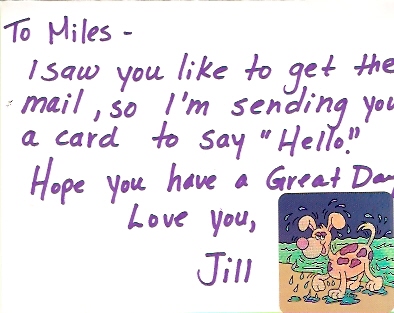 To Miles -
I saw you like to get the
mail, so I'm sending you
a card to say "Hello."
Hope you have a Great Day
Love you,
Jill